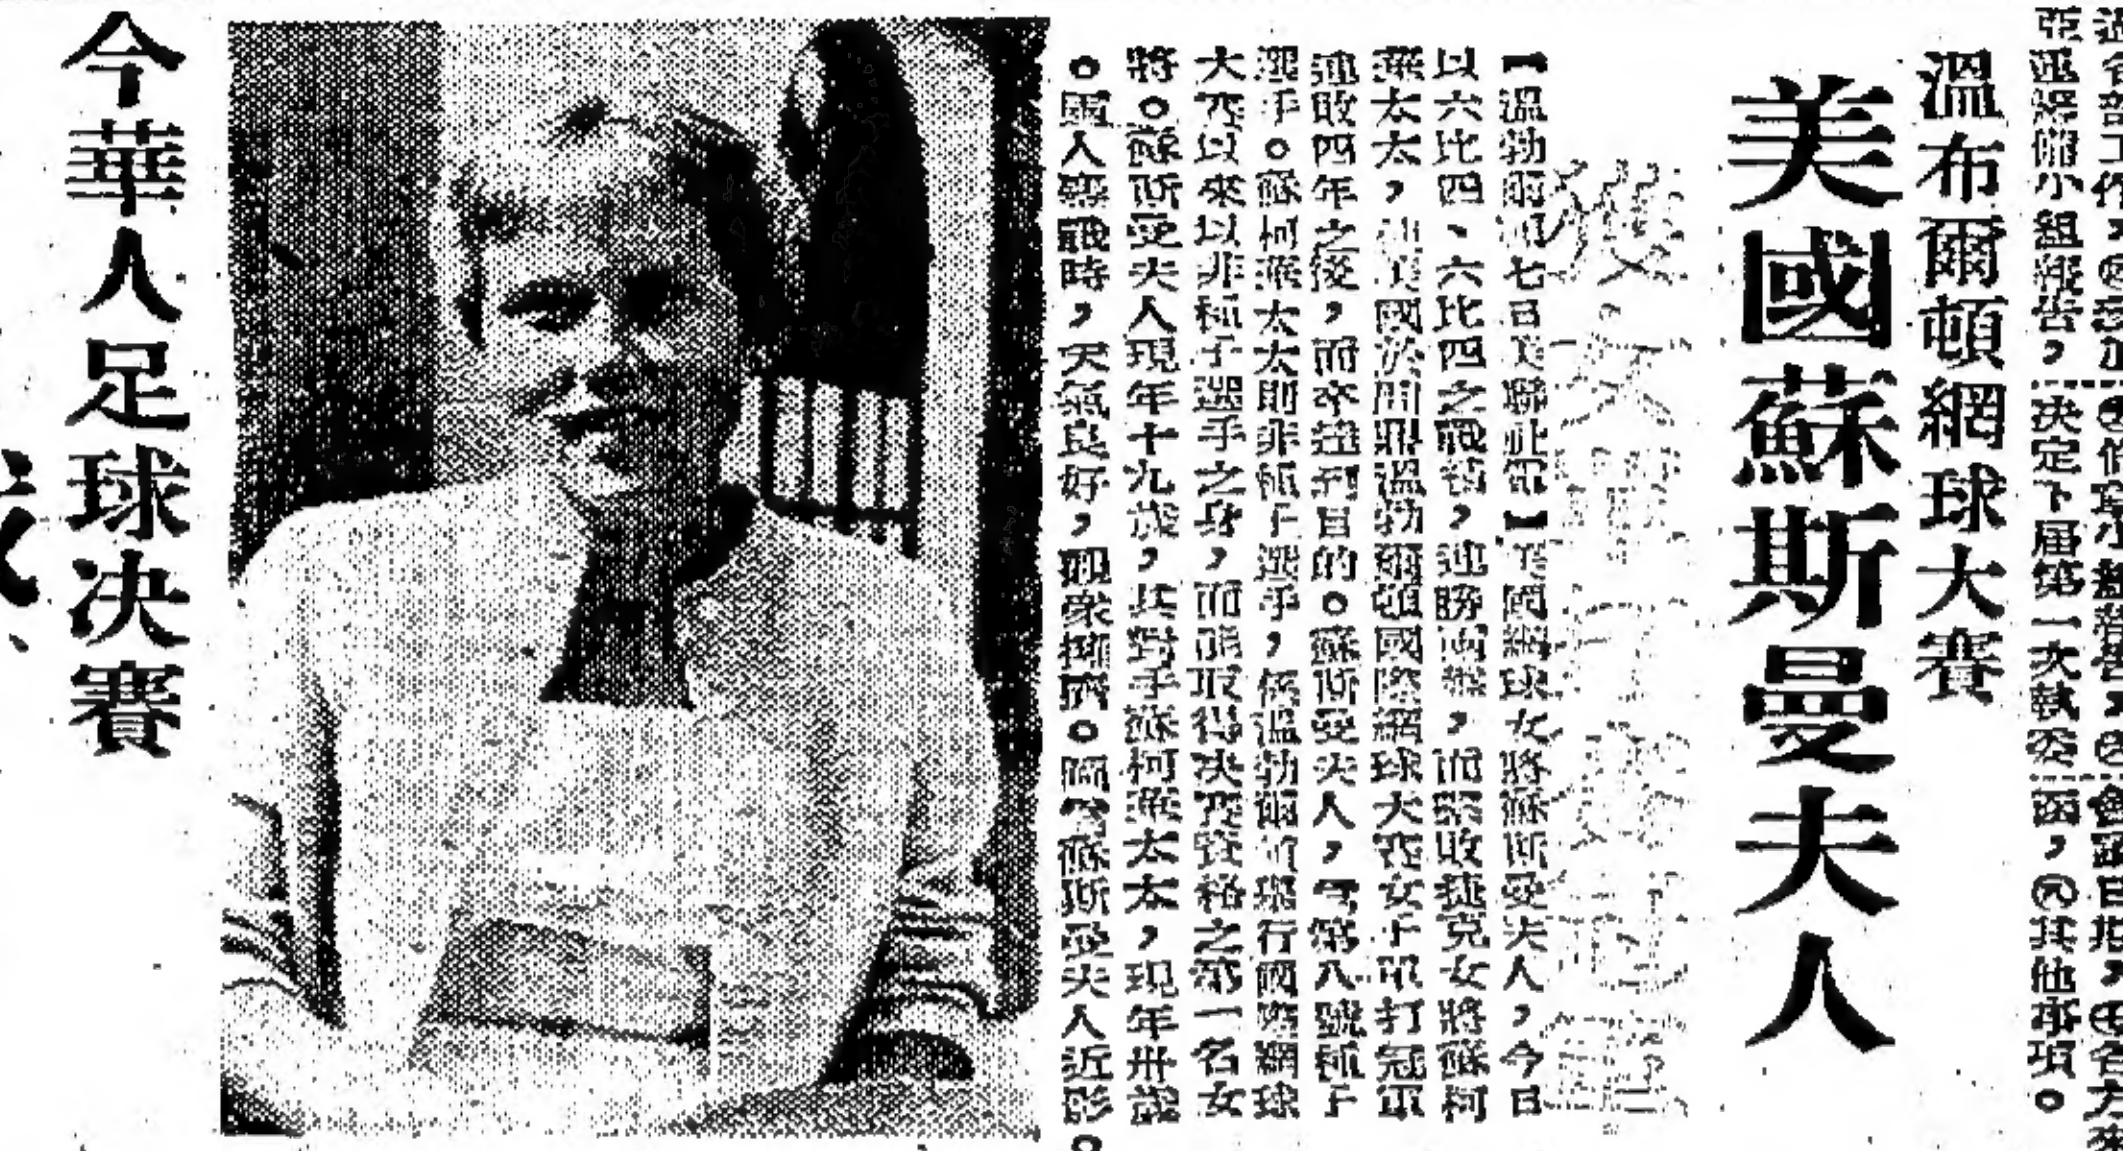 亞運籌備小組報告，
決定下屆第一次執委
函，㊈其他事項。
溫布爾頓網球大賽
美國蘇斯曼夫人
【溫勃爾頓七日美聯社電】美國網球女將蘇斯曼夫人，今日
以六比四、六比四之戰績，連勝兩盤，而擊敗捷克女將蘇柯
華太太，使美國於問鼎溫勃爾頓國際網球大賽女子單打冠軍
連敗四年之後，而卒達到目的。蘇斯曼夫人，為第八號種子
選手。蘇柯華太太則非種子選手，係溫勃爾頓舉行國際網球
大賽以來以非種子選手之身，而能取得決賽資格之第一名女
將。蘇斯曼夫人現年十九歲，其對手蘇柯華太太，現年卅歲
。兩人鏖戰時，天氣良好，觀衆擁擠。圖為蘇斯曼夫人近影。
今華人足球决賽